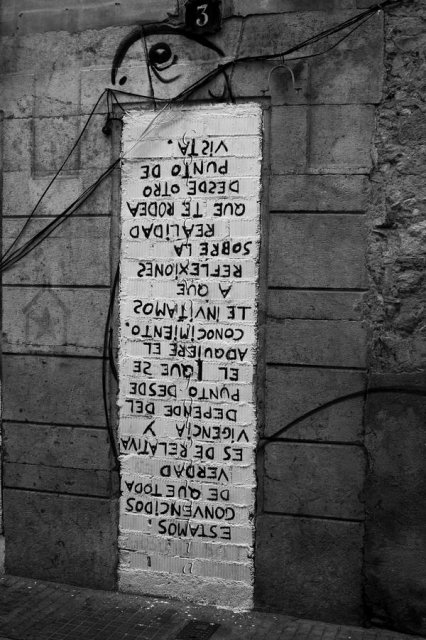 3
ESTAMOS
CONVENCIDOS
DE QUE TODA
VERDAD
ES DE RELATIVA
VIGENCIA Y
DEPENDE DEL
PUNTO DESDE
EL QUE SE
ADQUIERE EL
CONOCIMIENTO.
TE INVITAMOS
A QUE
REFLEXIONES
SOBRE LA
REALIDAD
QUE TE RODEA
DESDE OTRO
PUNTO DE
VISTA.